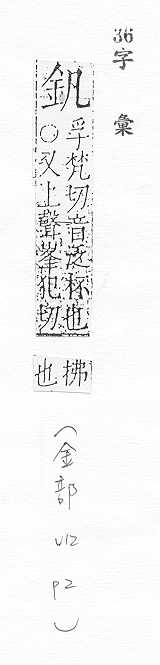 36字彙
釩
孚梵切音泛杯也
○又上聲峯犯切
拂
也
(金部 V12 P2)